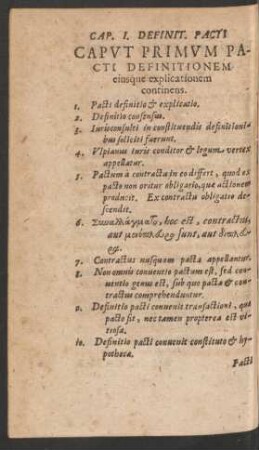 CAP. I. DEFINIT. PACTI
CAPVT PRIMVM PA-
CTI DEFINITIONEM
eiusque explicationem
continens.
1. Pacti definitio & explicatio.
2. Definitio consensus.
3. Iurisconsulti in constituendis definitioni-
bus foelices fuerunt.
4. Vlpianus iuris conditor & legum vertex
appellatur.
5. Pactum à contractu in eo differt, quod ex
pacto non oritur obligatio, quae actionem
producit. Ex contractu obligatio de-
scendit.
6. hoc est, contractus,
aut sunt, aut
7. Contractus nusquam pacta appellantur.
8. Non omnis conuentio pactum est, sed con-
uentio genus est, sub quo pacta & con-
tractus comprehenduntur.
9. Definitio pacti conuenit transactioni, quae
pacto fit, nec tamen propterea est vi-
tiosa.
10. Definitio pacti conuenit constituto & hy-
pothecae.
Pacti